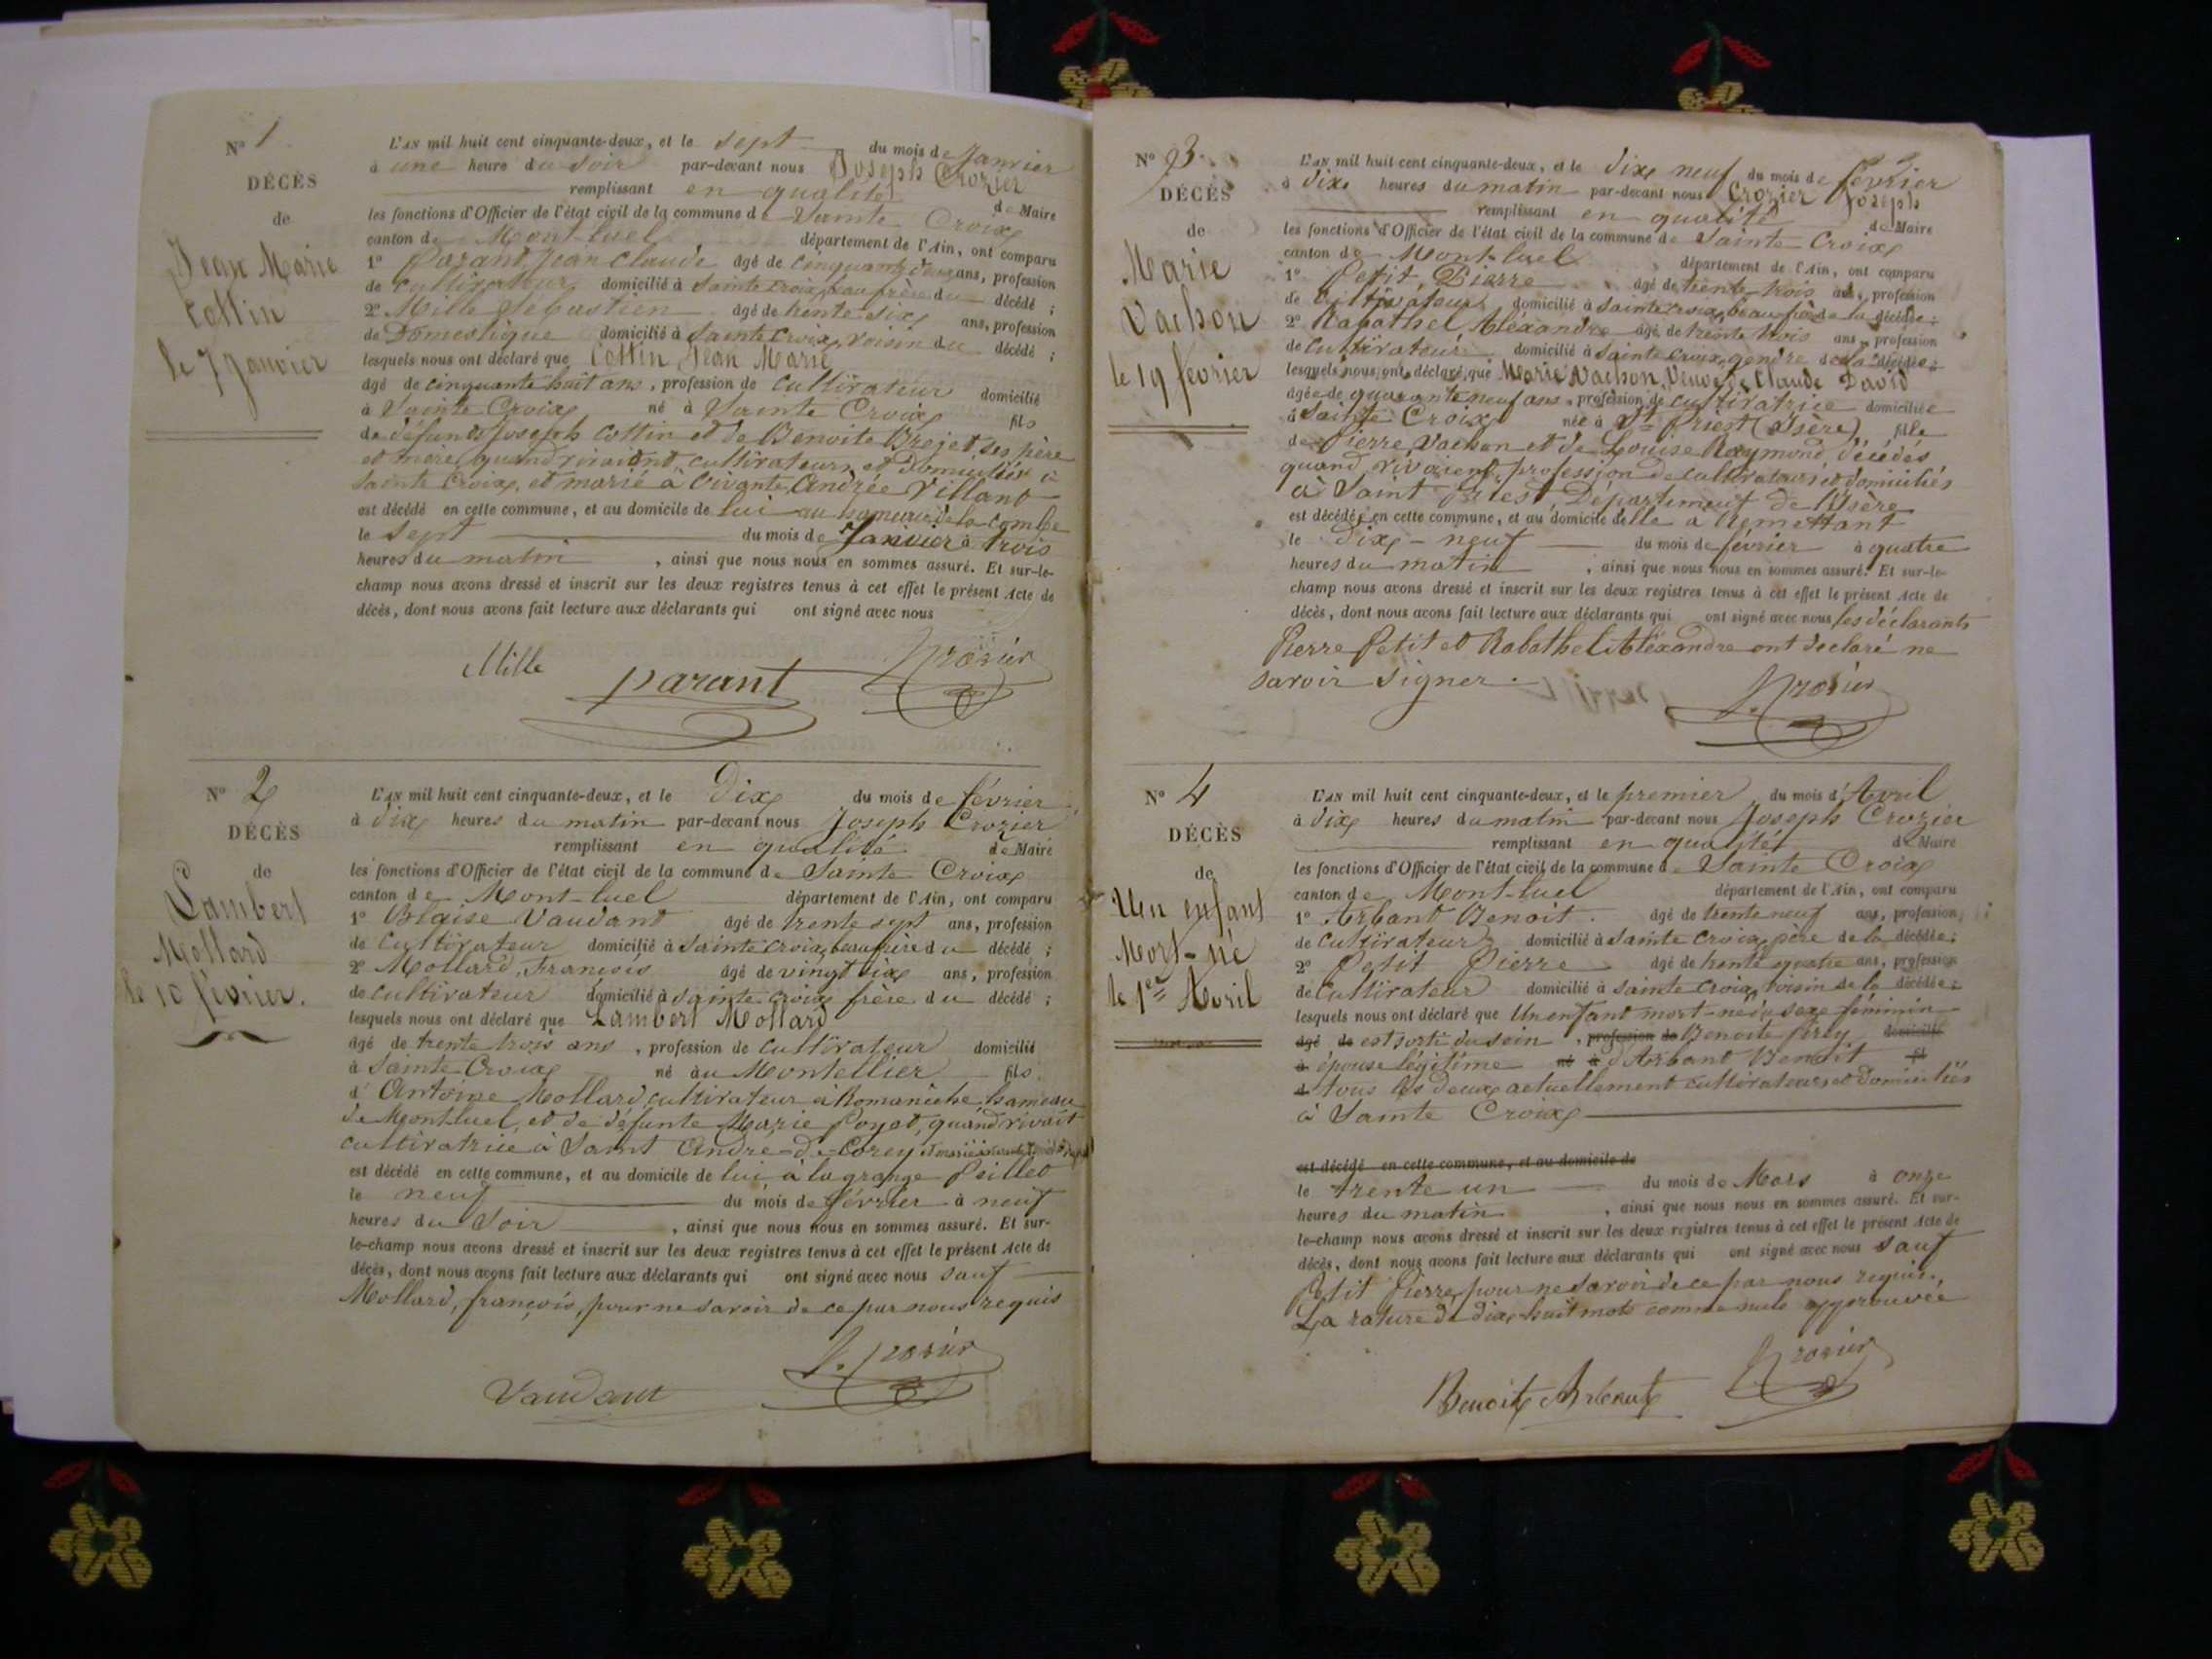 N° 1
DÉCÈS
de
Jean Marie
Cottin
le 7 Janvier
L'AN mil huit cent cinquante-deux, et le sept du mois de Janvier
à une heure du soir par-devant nous Joseph Crozier
remplissant en qualité de Maire
les fonctions d'Officier de l'état civil de la commune de Sainte Croix
canton de Mont-luel département de l'Ain, ont comparu
1° Parant Jean Claude âgé de cinquante deux ans, profession
de cultivateur domicilié à Sainte croix, beau frère du décédé ;
2° Mille Sébastien âgé de trente six ans, profession
de Domestique domicilié à Sainte Croix, voisin du décédé ;
lesquels nous ont déclaré que Cottin Jean Marie
âgé de cinquante huit ans, profession de cultivateur domicilié
à Sainte Croix né à Sainte Croix fils
de défunts Joseph Cottin et de Benoite Brejet, ses père
et mère, quand vivaient cultivateurs et Domiciliés à
Sainte Croix, et marié à vivante Andrée Villand
est décédé en cette commune, et au domicile de lui au hameau de la combe
le sept du mois de Janvier à trois
heures du matin, ainsi que nous nous en sommes assuré. Et sur-le-
champ nous avons dressé et inscrit sur les deux registres tenus à cet effet le présent Acte de
décès, dont nous avons fait lecture aux déclarants qui ont signé avec nous
Mille parant Crozier
N° 2
DÉCÈS
de
Lambert
Mollard
le 10 février.
L'AN mil huit cent cinquante-deux, et le Dix du mois de février
à dix heures du matin par-devant nous Joseph Crozier
remplissant en qualité de Maire
les fonctions d'Officier de l'état civil de la commune de Sainte Croix
canton de Mont-luel département de l'Ain, ont comparu
1° Blaise Vaudant âgé de trente sept ans, profession
de Cultivateur domicilié à Sainte croix, beau frère du décédé ;
2° Mollard, François âgé de vingt six ans, profession
de cultivateur domicilié à sainte croix frère du décédé ;
lesquels nous ont déclaré que Lambert Mollard
âgé de trente trois ans, profession de cultivateur domicilié
à Sainte Croix né au Montellier fils
d'Antoine Mollard, cultivateur à Romanèche hameau
de Montluel, et de défunte Marie Poyet, quand vivait
cultivatrice à Saint André-de-Corcy et marié à
est décédé en cette commune, et au domicile de lui à la grange Peillet
le neuf du mois de février à neuf
heures du soir, ainsi que nous nous en sommes assuré. Et sur-
le-champ nous avons dressé et inscrit sur les deux registres tenus à cet effet le présent Acte de
décès, dont nous avons fait lecture aux déclarants qui ont signé avec nous sauf
Mollard, françois, pour ne savoir de ce par nous requis
Vaudant J. Crozier
N° 3
DÉCÈS
de
Marie
Vachon
le 19 février
L'AN mil huit cent cinquante-deux, et le dix neuf du mois de février
à dix heures du matin par-devant nous Crozier Joseph
remplissant en qualité de Maire
les fonctions d'Officier de l'état civil de la commune de Sainte Croix
canton de Mont-luel département de l'Ain, ont comparu
1° Petit Pierre âgé de trente trois ans, profession
de cultivateur domicilié à Sainte croix, beau frère de la décédée ;
2° Rabathel Aléxandre âgé de trente trois ans profession
de cultivateur domicilié à Sainte croix, gendre de la décédée ;
lesquels nous ont déclaré que Marie Vachon, Veuve de Claude David
âgée de quarante neuf ans, profession de cultivatrice domiciliée
à Sainte Croix née à St Priest (Isère) fille
de Pierre Vachon et de Louise Raymond décédés
quand vivaient, profession de cultivateurs et domiciliés
à Saint Priest Département de l'Isère
est décédée en cette commune, et au domicile d'elle à Remettant
le Dix-neuf du mois de février à quatre
heures du matin, ainsi que nous nous en sommes assuré. Et sur-le-
champ nous avons dressé et inscrit sur les deux registres tenus à cet effet le présent Acte de
décès, dont nous avons fait lecture aux déclarants qui ont signé avec nous les déclarants
Pierre Petit et Rabathel Aléxandre ont déclaré ne
savoir signer.
Crozier
N° 4
DÉCÈS
de
Un enfant
Mort-né
le 1er Avril
L'AN mil huit cent cinquante-deux, et le premier du mois d'Avril
à dix heures du matin par-devant nous Joseph Crozier
remplissant en qualité de Maire
les fonctions d'Officier de l'état civil de la commune de Sainte Croix
canton de Mont-luel département de l'Ain, ont comparu
1° Arbant Benoit. âgé de trente neuf ans, profession
de cultivateur domicilié à Sainte croix, père de la décédée ;
2° Petit Pierre âgé de trente quatre ans, profession
de Cultivateur domicilié à Sainte croix, voisin de la décédée ;
lesquels nous ont déclaré que Un enfant mort-né du sexe féminin
âgé de est sorti du sein, profession de Benoite frey domicilié
à épouse légitime né à d'Arbant Benoit fil
d tous les deux actuellement cultivateurs et Domiciliés
à Sainte Croix
est décédé en cette commune, et au domicile de
le trente un du mois de Mars à onze
heures du matin, ainsi que nous nous en sommes assuré. Et sur-
le-champ nous avons dressé et inscrit sur les deux registres tenus à cet effet le présent Acte de
décès, dont nous avons fait lecture aux déclarants qui ont signé avec nous sauf
Petit Pierre, pour ne savoir de ce par nous requis.
La rature de dix-huit mots comme nuls approuvée
Benoit Crozier